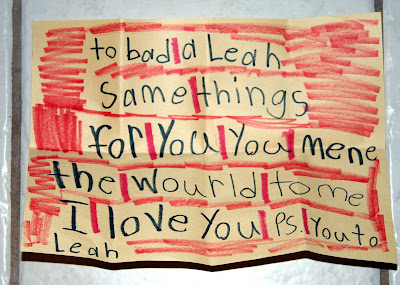 to bad a Leah
Same things
for You You mene
the wourld to me
I love You P.S. You to
Leah